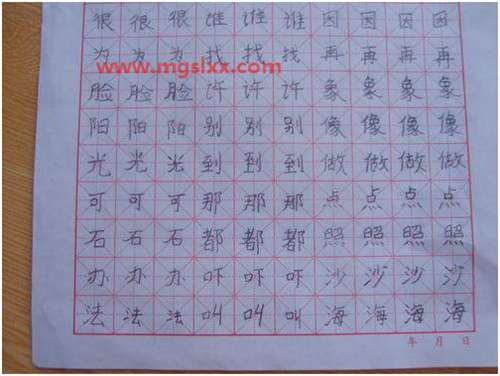 很很很谁谁谁因因因因
为为为找找找再再再再
www.mgslxx.com
脸脸脸许许许象象象象
阳阳阳别别别像像像像
光光光到到到做做做做
可可可那那那点点点点
石石石都都都照照照照
办办办吓吓吓沙沙沙沙
法法法叫叫叫海海海海
年 月 日